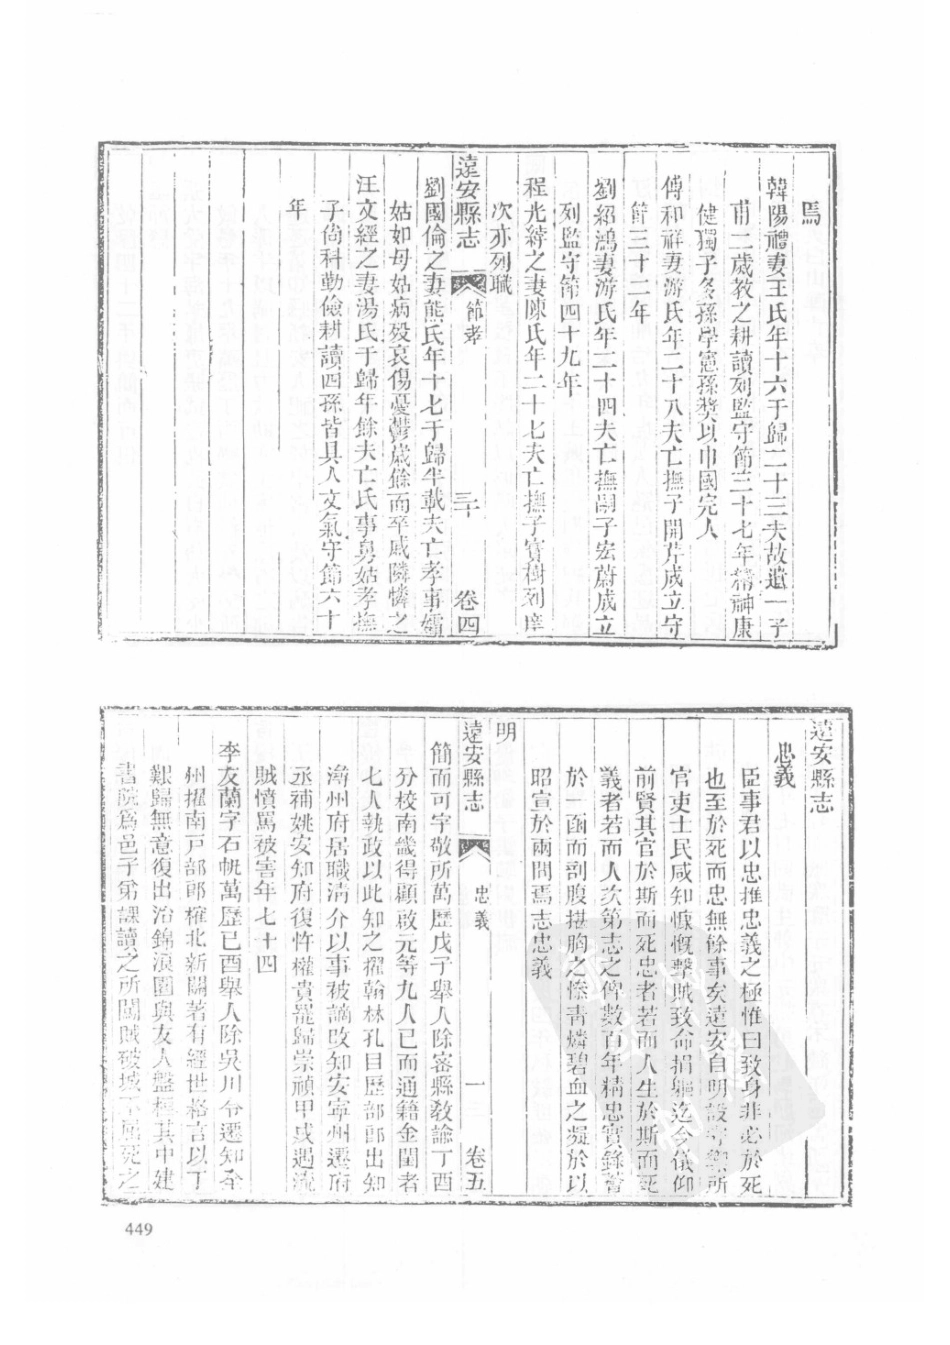 焉
韓陽禮妻王氏年十六于歸二十三夫故遺一子
甫二歲教之耕讀列監守節三十七年精神康
健獨子多孫學憲孫獎以巾國完人
傅和祥妻游氏年二十八夫亡撫子開芹成立守
節三十二年
劉紹鴻妻游氏年二十四夫亡撫嗣子宏蔚成立
列監守節四十九年
程光綺之妻陳氏年二十七夫亡撫子實樹列庠
次亦列職
遠安縣志 節孝 三十 卷四
劉國倫之妻熊氏年十七于歸半載夫亡孝事孀
姑如母姑病歿哀傷憂鬱歲餘而卒戚隣憐之
汪文經之妻湯氏于歸年餘夫亡氏事舅姑孝撫
子尙科勤儉耕讀四孫皆具人文氣守節六十
年
遠安縣志
忠義
臣事君以忠推忠義之極惟曰致身非必於死
也至於死而忠無餘事矣遠安自明設 所
官吏士民咸知慷慨擊賊致命捐軀迄今儀仰
前賢其官於斯而死忠者若而人生於斯而死
義者若而人次第志之俾數百年精忠實錄薈
於一函而剖腹堪胸之慘靑燐碧血之凝於以
昭宣於兩間焉志忠義
明
遠安縣志 忠義 一 卷五
簡而可字敬所萬歷戊子舉人除密縣敎諭丁酉
分校南畿得顧啟元等九人已而通籍金閨者
七人執政以此知之擢翰林孔目歷部郎出知
漪州府居職淸介以事被謫改知安寧州遷府
丞補姚安知府復忤權貴罷歸崇禎甲戌遇流
賊憤罵被害年七十四
李友蘭字石帆萬歷己酉舉人除吳川令遷知夲
州擢南戸部郎榷北新關著有經世格言以丁
艱歸無意復出治錦浪園與友人盤桓其中建
書院爲邑子弟課讀之所闖賊破城不屈死之
449